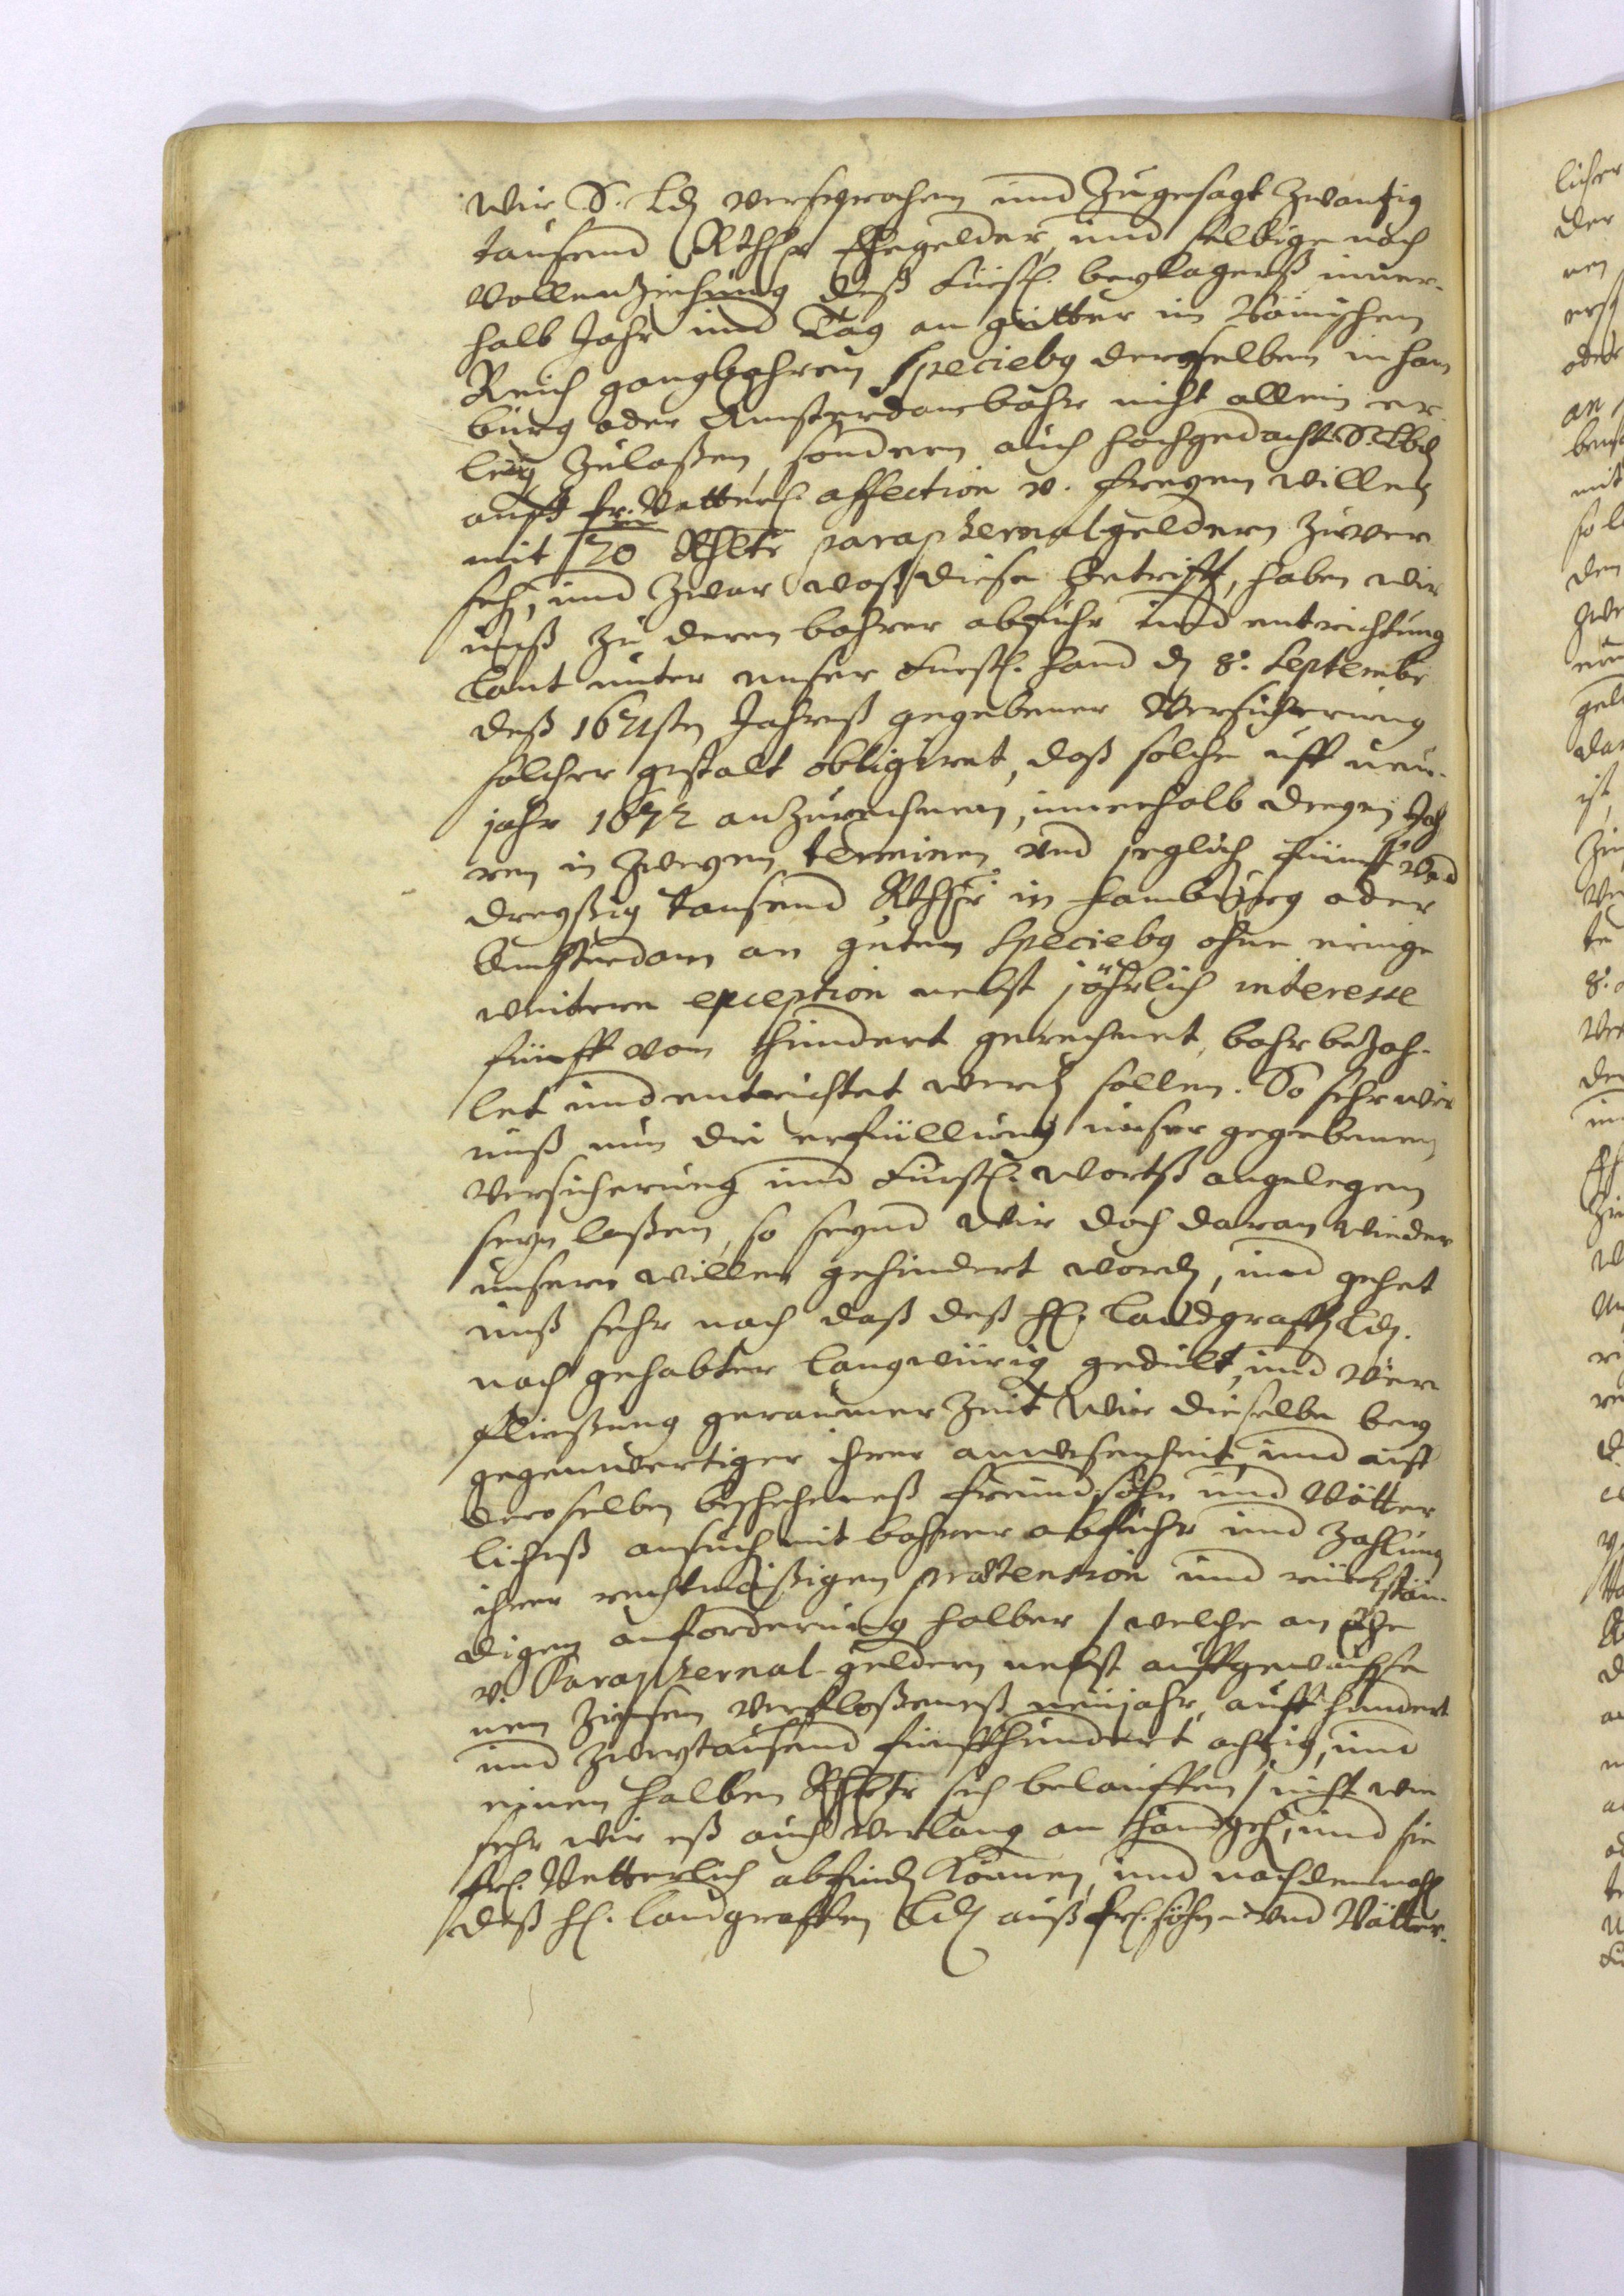 wir S. Ldn versprochen und Zugesagt Zwantzig
tausend Rthlr Ehegelder, und selbige nach
Vollenziehung deß Fürstl. beylagerß inner-
halb Jahr und Tag an gutter im Römischen
Reich gangbahren Speciebg derselben in Ham
burg oder Amsterdam bahr nicht allein er
leg Zulaßen, sondern auch hochgedacht S. Lbd
auß fr. Vetterl. affection v. freyen willen
mit 70 Rhltr paraphernalgeldern zuver
seh, und Zwar waß diese betrifft, haben wir
unß zu deren bahrer abfuhr und entrichtung
laut unter unser Fürstl. Hand d 8. Septembr
deß 1671sten Jahreß gegebener Versicherung
solcher gestalt obligiret, daß solche uff neu-
jahr 1672 anzurechnen, innerhalb dreyen Jah
ren in Zweyen terminen und jeglich fünff Vnd
dreyßig tausend Rthlr in Hamburg oder
Amsterdam an guten Speciebg ohne einige
weitere exception nebst jährlich interesse
fünff von Hundert gerechnet, bahr bezah-
let und entrichtet werd sollen. So sehr wir
unß nun die erfüllung unser gegebenen
Versicherung und Fürstl. wortß angelegen
seyn laßen, so seynd wir doch daran wieder
unsern willen gehindert word, und gehet
unß sehr nach daß deß H. Landgraffn Ldn.
nach gehabter langwürig gedult, und Ver
fließung geraumer Zeit wir dieselbe bey
gegenwertiger ihrer anwesenheit und auff
deroselben bescheheneß freund söhn und Vätter
licheß ansuch mit bahrer abfuhr und Zahlung
ihrer rechtmäßigen prætension und rückstän-
digen anforderung halber / welche an Ehe
v. Paraphernal-geldern nebst auffgewachse
nen Zinsen verfloßeneß neujahr, auff hundert
und Zweytausend fünffhundert achtzig, und
einen halben Rhltr sich belauffen / nicht wie
sehr wir eß auch verlang an Handgeh, und sie
frl. Vetterlich abfind können, und nachdemmahl
deß H. Landgraffen Ldn auß frl. söhn- und Vätter-